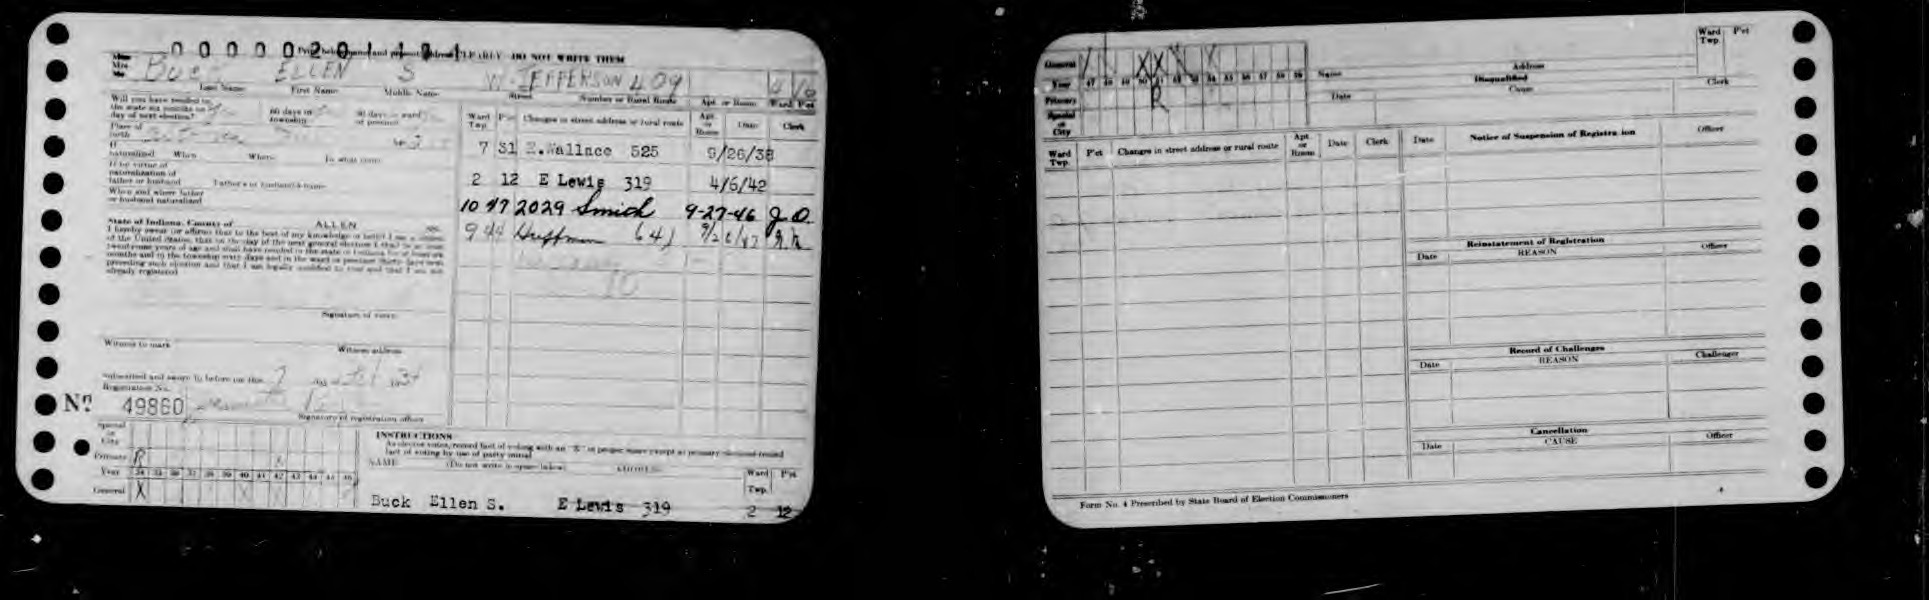 DO NOT WRITE THEM
Buck ELLEN S W. JEFFERSON 409
Last Name First Name Middle Name Street Number or Rural Route Apt. or Room Ward Pct
Will you have resided in
the state six months on
day of next election?
60 days in
township
30 days in ward
or precinct
Place of
birth
If
naturalized When Where In what court
If by virtue of
naturalization of
father or husband Father's or husband's name
When and where father
or husband naturalized
State of Indiana, County of ALLEN ss:
I hereby swear (or affirm) that to the best of my knowledge or belief I am a citizen
of the United States, that on the day of the next general election I shall be at least
twenty-one years of age and shall have resided in the state of Indiana for at least six
months and in the township sixty days and in the ward or precinct thirty days next
preceding such election and that I am legally qualified to vote and that I am not
already registered.
Signature of voter
Witness to mark Witness address
Subscribed and sworn to before me this 7
Registration No.
Nº 49860
Signature of registration officer
Ward Twp. Pct Changes in street address or rural route Apt. or Room Date Clerk
7 31 E.Wallace 525 9/26/38
2 12 E Lewis 319 4/6/42
10 47 2029 Smith 9-27-46 J.O.
9 44 Huffman 641 9/26/47
Special
or
City
Primary R
Year 34 35 36 37 38 39 40 41 42 43 44 45 46
General X X X
INSTRUCTIONS
As elector votes, record fact of voting with an "X" in proper space except at primary election record
fact of voting by use of party initial
NAME (Do not write in space below) ADDRESS Ward Twp. Pct
Buck Ellen S. E Lewis 319 2 12
General X X X X
Year 47 48 49 50 51 52 53 54 55 56 57 58 59
Primary R
Special
or
City
Name Address Ward Twp. Pct
Disqualified
Date Cause Clerk
Ward Twp. Pct Changes in street address or rural route Apt. or Room Date Clerk
Date Notice of Suspension of Registration Officer
Reinstatement of Registration
Date REASON Officer
Record of Challenges
Date REASON Challenger
Cancellation
Date CAUSE Officer
Form No. 4 Prescribed by State Board of Election Commissioners